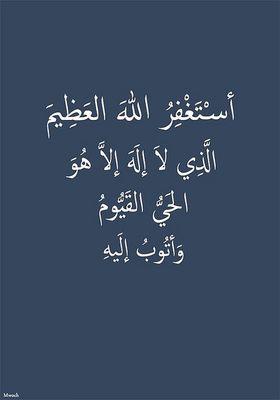 أسْتَغْفِرُ اللهَ العَظِيمَ
الَّذِي لاَ إلَهَ إلاَّ هُوَ
الحَيُّ القَيُّومُ
وَأتُوبُ إلَيهِ
Mwoch